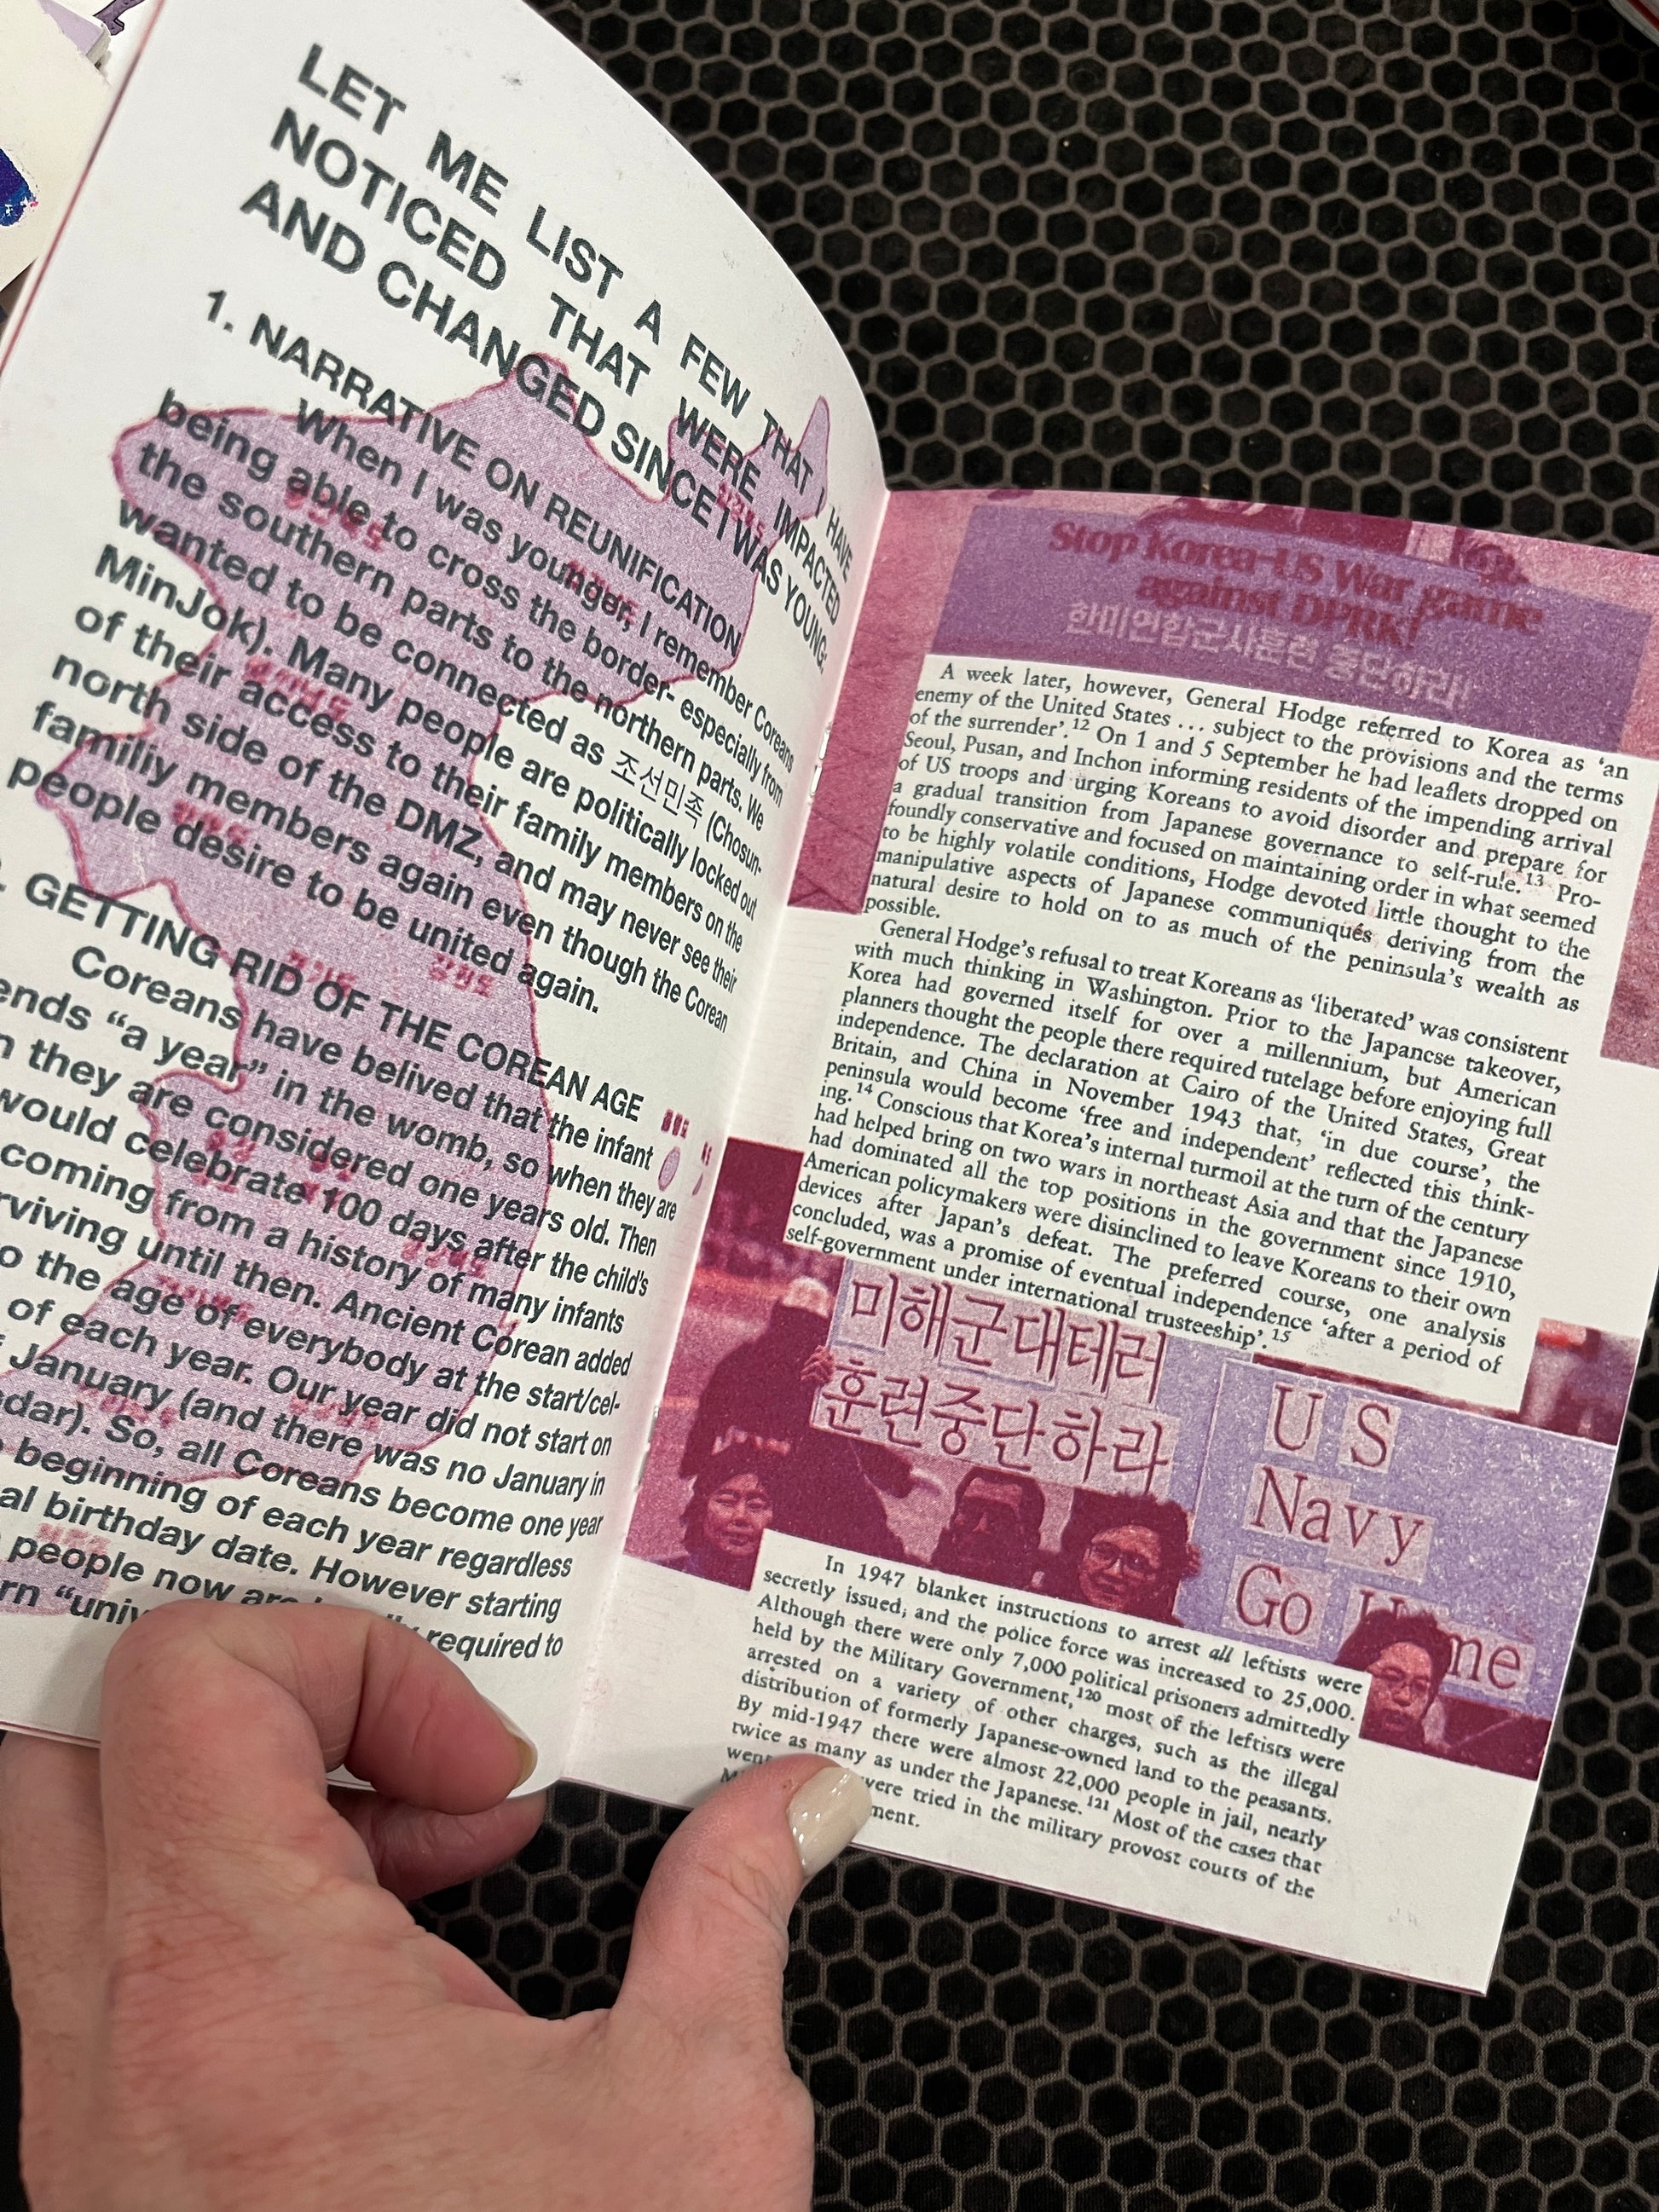 LET ME LIST A FEW THAT I HAVE
NOTICED THAT WERE IMPACTED
AND CHANGED SINCE I WAS YOUNG:
1. NARRATIVE ON REUNIFICATION
When I was younger, I remember Coreans
being able to cross the border- especially from
the southern parts to the northern parts. We
wanted to be connected as 조선민족 (Chosun-
MinJok). Many people are politically locked out
of their access to their family members on the
north side of the DMZ, and may never see their
familiy members again even though the Corean
people desire to be united again.
. GETTING RID OF THE COREAN AGE
Coreans have belived that the infant
ends “a year” in the womb, so when they are
they are considered one years old. Then
would celebrate 100 days after the child's
coming from a history of many infants
rviving until then. Ancient Corean added
o the age of everybody at the start/cel-
of each year. Our year did not start on
January (and there was no January in
dar). So, all Coreans become one year
beginning of each year regardless
al birthday date. However starting
people now are required to
rn “univ
Stop Korea-US War game
against DPRK!
한미연합군사훈련 중단하라!
A week later, however, General Hodge referred to Korea as ‘an
enemy of the United States ... subject to the provisions and the terms
of the surrender’.12 On 1 and 5 September he had leaflets dropped on
Seoul, Pusan, and Inchon informing residents of the impending arrival
of US troops and urging Koreans to avoid disorder and prepare for
a gradual transition from Japanese governance to self-rule.13 Pro-
foundly conservative and focused on maintaining order in what seemed
to be highly volatile conditions, Hodge devoted little thought to the
manipulative aspects of Japanese communiqués deriving from the
natural desire to hold on to as much of the peninsula's wealth as
possible.
General Hodge's refusal to treat Koreans as ‘liberated’ was consistent
with much thinking in Washington. Prior to the Japanese takeover,
Korea had governed itself for over a millennium, but American
planners thought the people there required tutelage before enjoying full
independence. The declaration at Cairo of the United States, Great
Britain, and China in November 1943 that, ‘in due course’, the
peninsula would become ‘free and independent’ reflected this think-
ing.14 Conscious that Korea's internal turmoil at the turn of the century
had helped bring on two wars in northeast Asia and that the Japanese
had dominated all the top positions in the government since 1910,
American policymakers were disinclined to leave Koreans to their own
devices after Japan's defeat. The preferred course, one analysis
concluded, was a promise of eventual independence ‘after a period of
self-government under international trusteeship’.15
미해군대테러
훈련중단하라
US
Navy
Go Home
In 1947 blanket instructions to arrest all leftists were
secretly issued, and the police force was increased to 25,000.
Although there were only 7,000 political prisoners admittedly
held by the Military Government,120 most of the leftists were
arrested on a variety of other charges, such as the illegal
distribution of formerly Japanese-owned land to the peasants.
By mid-1947 there were almost 22,000 people in jail, nearly
twice as many as under the Japanese.121 Most of the cases that
were tried in the military provost courts of the
ment.